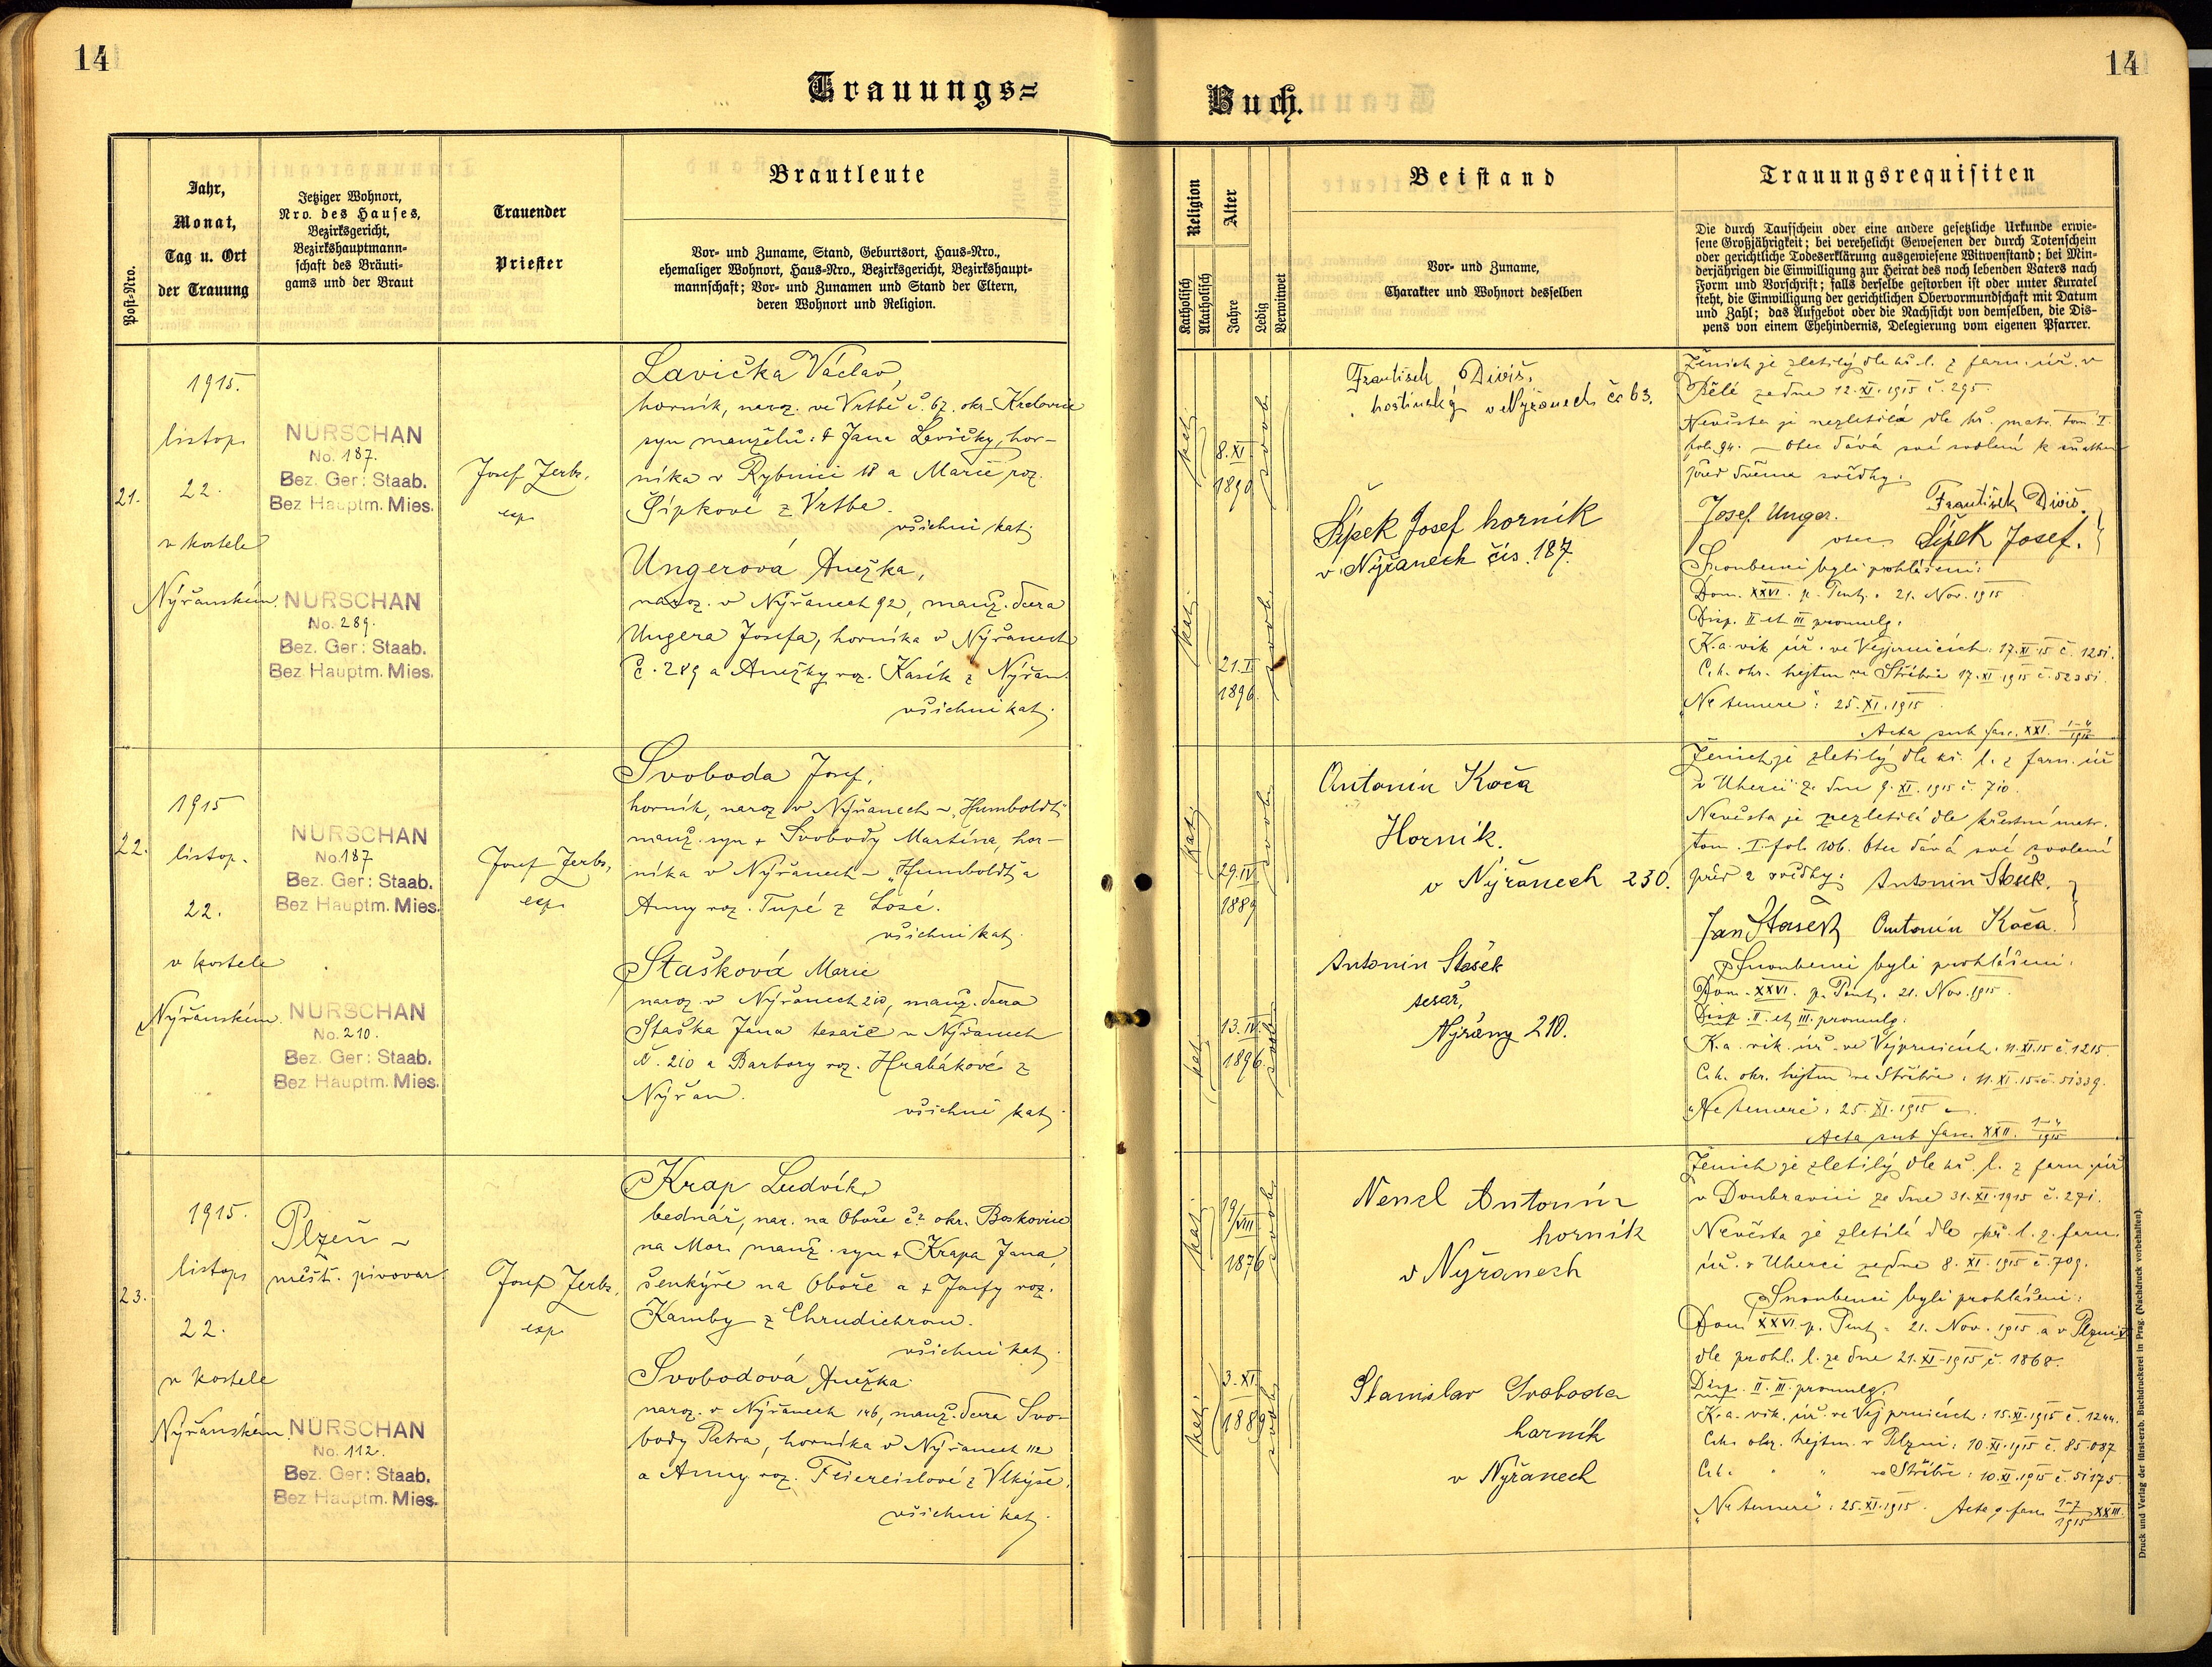 14
14
Trauungs=
Buch.
Post-Nro.
Jahr,
Monat,
Tag u. Ort
der Trauung
Jetziger Wohnort,
Nro. des Hauses,
Bezirksgericht,
Bezirkshauptmann-
schaft des Bräuti-
gams und der Braut
Trauender
Priester
Brautleute
Vor- und Zuname, Stand, Geburtsort, Haus-Nro.,
ehemaliger Wohnort, Haus-Nro., Bezirksgericht, Bezirkshaupt-
mannschaft; Vor- und Zunamen und Stand der Eltern,
deren Wohnort und Religion.
Religion
Katholisch
Akatholisch
Alter
Jahre
Ledig
Verwitwet
Beistand
Vor- und Zuname,
Charakter und Wohnort desselben
Trauungsrequisiten
Die durch Taufschein oder eine andere gesetzliche Urkunde erwie-
sene Großjährigkeit; bei verehelicht Gewesenen der durch Totenschein
oder gerichtliche Todeserklärung ausgewiesene Witwenstand; bei Min-
derjährigen die Einwilligung zur Heirat des noch lebenden Vaters nach
Form und Vorschrift; falls derselbe gestorben ist oder unter Kuratel
steht, die Einwilligung der gerichtlichen Obervormundschaft mit Datum
und Zahl; das Aufgebot oder die Nachsicht von demselben, die Dis-
pens von einem Ehehindernis, Delegierung vom eigenen Pfarrer.
21.
1915.
listop.
22.
v kostele
Nýřanském.
NÜRSCHAN
No. 187.
Bez. Ger: Staab.
Bez Hauptm. Mies.
NÜRSCHAN
No. 289.
Bez. Ger: Staab.
Bez Hauptm. Mies.
Josef Jerbs,
exp.
Lavička Václav,
horník, naroz. ve Vrtbě č. 67. okr. Kralovice
syn manželů: † Jana Lavičky, hor-
níka v Rybnici 18 a Marie roz.
Šípkové z Vrtbe.
všichni kat.
Ungerová Anežka,
naroz. v Nýřanech 92, manž. dcera
Ungera Josefa, horníka v Nýřanech
č. 289 a Anežky roz. Kasík z Nýřan
všichni kat.
kat.
8. XI
1890
svob.
kat.
21. I
1896.
svob.
František Diviš,
hostinský v Nýřanech čs 63.
Šípek Josef horník
v Nýřanech čís. 187.
Ženich je zletilý dle kř. l. z farn. úř. v
Bělé ze dne 12. XI. 1915 č. 295
Nevěsta je nezletilá dle kř. matr. tom I.
fol. 94. — Otec dává své svolení k sňatku
před dvěma svědky:
Josef Unger. František Diviš.
otec Šípek Josef.
Snoubenci byli prohlášeni:
Dom. XXVI. p. Pent. 21. Nov. 1915
Disp. II et III promulg.
K. a. vik. úř. ve Vejprnicích: 17. XI. 15 č. 1251.
C. k. okr. hejtm. ve Stříbře 17. XI. 1915 č. 52351.
"Ne temere": 25. XI. 1915
Acta sub fasc. XXI. 1-4/1915
22.
1915
listop.
22.
v kostele
Nýřanském.
NÜRSCHAN
No. 187
Bez. Ger: Staab.
Bez Hauptm. Mies.
NÜRSCHAN
No. 210.
Bez. Ger: Staab.
Bez Hauptm. Mies.
Josef Jerbs,
exp.
Svoboda Josef,
horník, naroz v Nýřanech - "Humboldt"
manž. syn † Svobody Martina, hor-
níka v Nýřanech - "Humboldt" a
Anny roz. Tupé z Losé.
všichni kat.
Stašková Marie
naroz. v Nýřanech 210, manž. dcera
Staška Jana tesaře v Nýřanech
č. 210 a Barbory roz. Hrabákové z
Nýřan.
všichni kat.
kat.
29. IV
1889
svob.
kat.
13. IV.
1896.
svob.
Antonín Koča
Horník.
v Nýřanech 230.
Antonín Stašek
tesař,
Nýřany 210.
Ženich je zletilý dle kř. l. z farn. úř
v Uhercí ze dne 9. XI. 1915 č. 710.
Nevěsta je nezletilá dle křestní matr.
tom. I. fol. 106. Otec dává své svolení
před 2 svědky: Antonín Stašek.
Jan Stašek Antonín Koča.
Snoubenci byli prohlášeni:
Dom. XXVI. p. Pent. 21. Nov. 1915.
Disp. II. et III. promulg:
K. a. vik. úř. ve Vejprnicích: 11. XI. 15 č. 1215.
C. k. okr. hejtm ve Stříbře: 11. XI. 15. č. 51339.
"Ne temere": 25. XI. 1915
Acta sub fasc. XXII. 1-4/1915
23.
1915.
listop.
22.
v kostele
Nýřanském.
Plzeň -
měšť. pivovar.
NÜRSCHAN
No. 112.
Bez. Ger: Staab.
Bez Hauptm. Mies.
Josef Jerbs,
exp.
Krap Ludvík,
bednář, nar. na Oboře č. 2 okr. Boskovice
na Mor. manž. syn † Krapa Jana,
šenkýře na Oboře a † Josefy roz.
Kamby z Chrudichrom.
všichni kat.
Svobodová Anežka
naroz. v Nýřanech 146, manž. dcera Svo-
body Petra, horníka v Nýřanech 112
a Anny roz. Feiereislové z Vlkýše.
všichni kat.
kat.
19/VIII
1876
svob.
kat.
3. XI.
1889
svob.
Nensl Antonín
horník
v Nýřanech
Stanislav Svoboda
horník
v Nýřanech
Ženich je zletilý dle kř. l. z farn. úř
v Doubravici ze dne 31. XI. 1915 č. 271.
Nevěsta je zletilá dle kř. l. z farn.
úř. v Uherci ze dne 8. XI. 1915 č. 709.
Snoubenci byli prohlášeni:
Dom XXVI. p. Pent. 21. Nov. 1915 a v Plzni
dle prohl. l. ze dne 21. XI. 1915 č. 1868.
Disp. II. III. promulg.
K. a. vik. úř. ve Vejprnicích: 15. XI. 1915 č. 1244.
C. k. okr. hejtm. v Plzni: 10. XI. 1915 č. 85.087
C. k. " " ve Stříbře: 10. XI. 1915 č. 51175.
"Ne temere": 25. XI. 1915. Acta s. fasc. 1-7/1915 XXIII.
Druck und Verlag der fürst-erzb. Buchdruckerei in Prag. (Nachdruck vorbehalten).